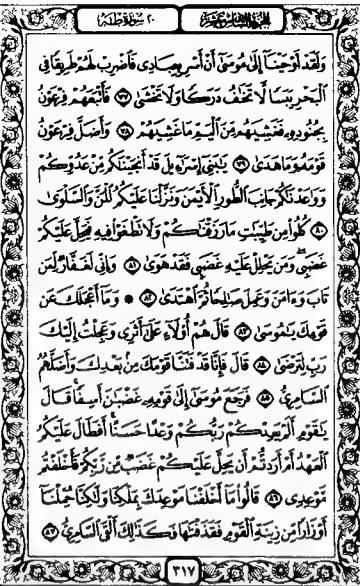 الجزء السادس عشر
٢٠ سورة طه
وَلَقَدْ أَوْحَيْنَآ إِلَىٰ مُوسَىٰٓ أَنْ أَسْرِ بِعِبَادِى فَٱضْرِبْ لَهُمْ طَرِيقًا فِى
ٱلْبَحْرِ يَبَسًا لَّا تَخَٰفُ دَرَكًا وَلَا تَخْشَىٰ ٧٧ فَأَتْبَعَهُمْ فِرْعَوْنُ
بِجُنُودِهِۦ فَغَشِيَهُم مِّنَ ٱلْيَمِّ مَا غَشِيَهُمْ ٧٨ وَأَضَلَّ فِرْعَوْنُ
قَوْمَهُۥ وَمَا هَدَىٰ ٧٩ يَٰبَنِىٓ إِسْرَٰٓءِيلَ قَدْ أَنجَيْنَٰكُم مِّنْ عَدُوِّكُمْ
وَوَٰعَدْنَٰكُمْ جَانِبَ ٱلطُّورِ ٱلْأَيْمَنَ وَنَزَّلْنَا عَلَيْكُمُ ٱلْمَنَّ وَٱلسَّلْوَىٰ
٨٠ كُلُوا۟ مِن طَيِّبَٰتِ مَا رَزَقْنَٰكُمْ وَلَا تَطْغَوْا۟ فِيهِ فَيَحِلَّ عَلَيْكُمْ
غَضَبِى وَمَن يَحْلِلْ عَلَيْهِ غَضَبِى فَقَدْ هَوَىٰ ٨١ وَإِنِّى لَغَفَّارٌ لِّمَن
تَابَ وَءَامَنَ وَعَمِلَ صَٰلِحًا ثُمَّ ٱهْتَدَىٰ ٨٢ وَمَآ أَعْجَلَكَ عَن
قَوْمِكَ يَٰمُوسَىٰ ٨٣ قَالَ هُمْ أُو۟لَآءِ عَلَىٰٓ أَثَرِى وَعَجِلْتُ إِلَيْكَ
رَبِّ لِتَرْضَىٰ ٨٤ قَالَ فَإِنَّا قَدْ فَتَنَّا قَوْمَكَ مِنۢ بَعْدِكَ وَأَضَلَّهُمُ
ٱلسَّامِرِىُّ ٨٥ فَرَجَعَ مُوسَىٰٓ إِلَىٰ قَوْمِهِۦ غَضْبَٰنَ أَسِفًا قَالَ
يَٰقَوْمِ أَلَمْ يَعِدْكُمْ رَبُّكُمْ وَعْدًا حَسَنًا أَفَطَالَ عَلَيْكُمُ
ٱلْعَهْدُ أَمْ أَرَدتُّمْ أَن يَحِلَّ عَلَيْكُمْ غَضَبٌ مِّن رَّبِّكُمْ فَأَخْلَفْتُم
مَّوْعِدِى ٨٦ قَالُوا۟ مَآ أَخْلَفْنَا مَوْعِدَكَ بِمَلْكِنَا وَلَٰكِنَّا حُمِّلْنَآ
أَوْزَارًا مِّن زِينَةِ ٱلْقَوْمِ فَقَذَفْنَٰهَا فَكَذَٰلِكَ أَلْقَى ٱلسَّامِرِىُّ ٨٧
٣١٧